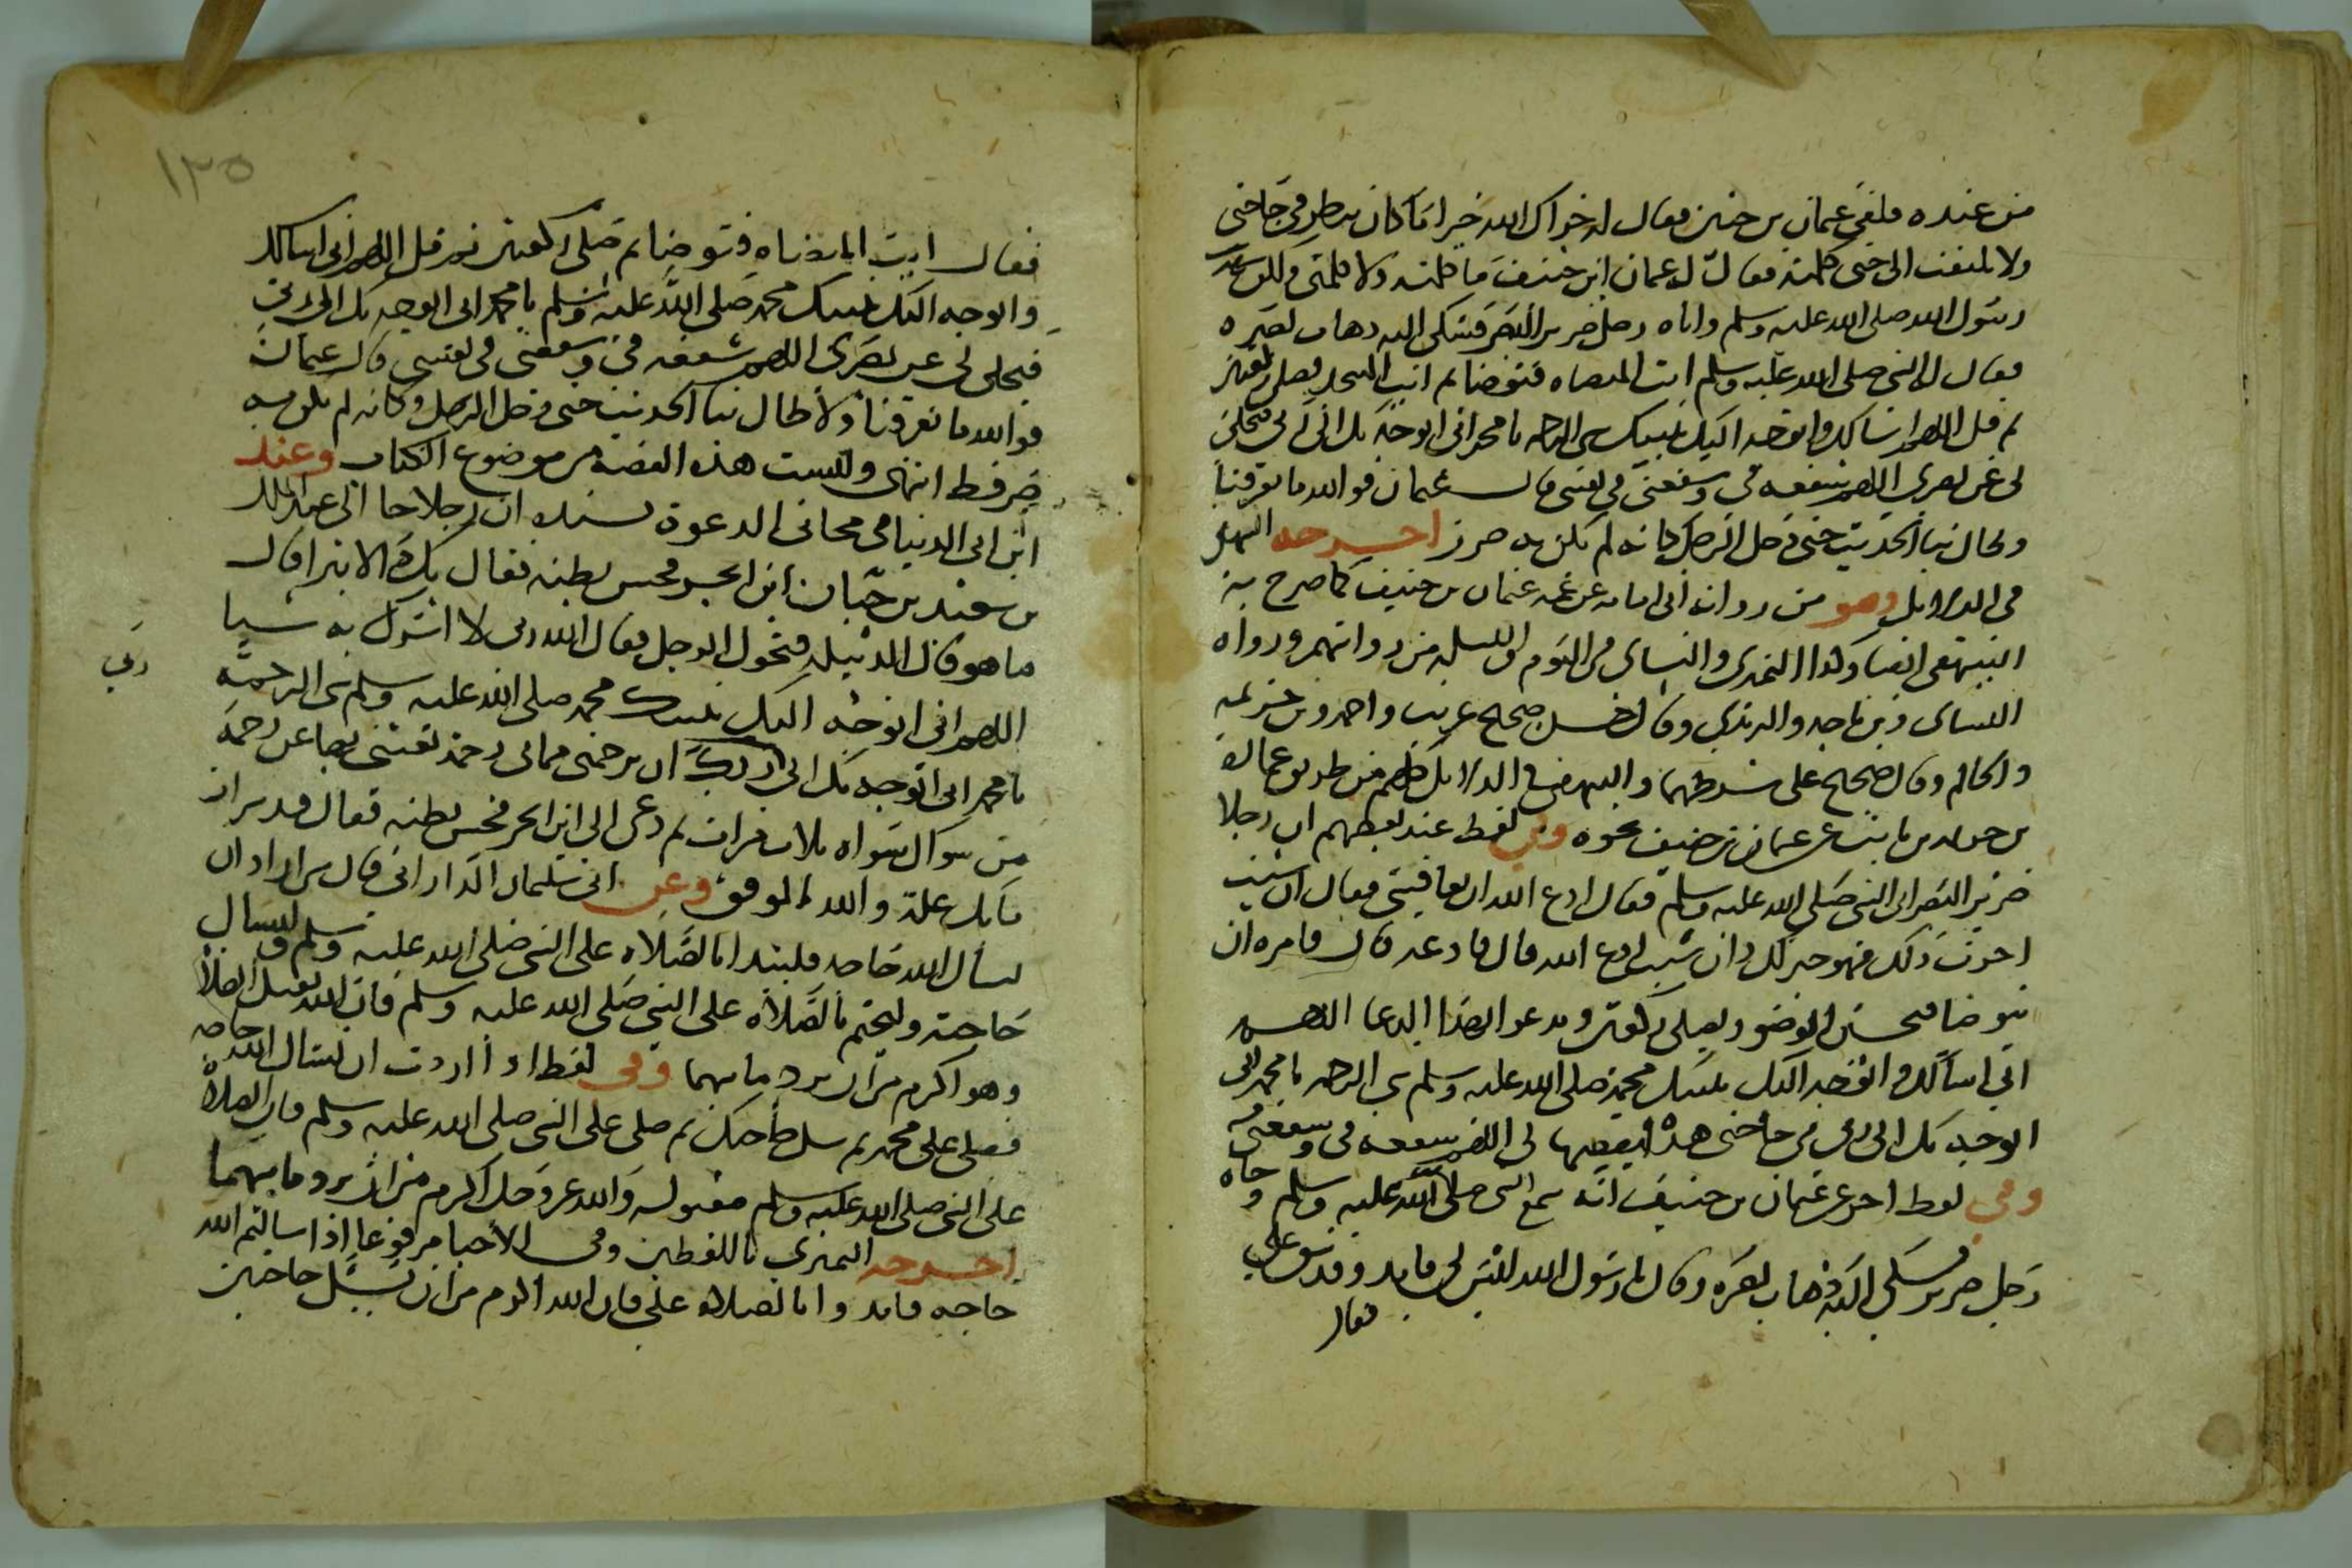 من عنده فلقى عثمان بن حنيف فقال له جزاك الله خيرا ما كان ينظر في حاجتي
ولا يلتفت الي حتى كلمته فقال له عثمان ابن حنيف ما كلمته ولا كلمني ولكن شهدت
رسول الله صلى الله عليه وسلم واتاه رجل ضرير البصر فشكى اليه ذهاب بصره
فقال له النبي صلى الله عليه وسلم ايت الميضاه فتوضا ثم ايت المسجد فصل ركعتين
ثم قل اللهم اني اسالك واتوجه اليك بنبيك نبي الرحمه يا محمد اني اتوجه بك الى ربي فيجلي
لي عن بصري اللهم شفعه في وشفعني في نفسي قال عثمان فوالله ما تفرقنا
وطال بنا الحديث حتى دخل الرجل كانه لم يكن به ضرر اخرجه البيهقي
في الدلايل وهو من رواية ابي امامه عن عمه عثمان بن حنيف كما صرح به
البيهقي ايضا وكذا النميري والنساى في اليوم والليله من روايتهم ورواه
النساى وبن ماجه والترمذي وقال حسن صحيح غريب واحمد وبن خزيمه
والحاكم وقال صحيح على شرطهما والبيهقي في الدلايل كلهم من طريق عماره
بن خزيمه بن ثابت عن عثمان بن حنيف نحوه وفي لفظ عند بعضهم ان رجلا
ضرير البصر اتى النبي صلى الله عليه وسلم فقال ادع الله ان يعافيني فقال ان شيت
اخرت ذلك فهو خير لك وان شيت ادع الله قال فادعه قال فامره ان
يتوضا فيحسن الوضو ويصلي ركعتين ويدعو بهذا الدعا اللهم
اني اسالك واتوجه اليك بنبيك محمد صلى الله عليه وسلم نبي الرحمه يا محمد اني
اتوجه بك الى ربي في حاجتي هذه ليقضيها لي اللهم شفعه في وشفعني فيه
وفي لفظ اخر عن عثمان بن حنيف انه سمع النبي صلى الله عليه وسلم وجاه
رجل ضرير فشكى اليه ذهاب بصره وقال يا رسول الله ليس لي قايد وقد شق علي
فقال
١٣٥
فقال ايت الميضاه فتوضا ثم صلى ركعتين ثم قل اللهم اني اسالك
واتوجه اليك بنبيك محمد صلى الله عليه وسلم يا محمد اني اتوجه بك الى ربي
فيجلى لي عن بصري اللهم شفعه في وشفعني في نفسي قال عثمان
فوالله ما تفرقنا ولا طال بنا الحديث حتى دخل الرجل وكانه لم يكن به
ضر قط انتهى وليست هذه القصة من موضوع الكتاب وعند
ابن ابي الدنيا في مجابى الدعوة بسنده ان رجلا جا الى عبد الملك
بن سعيد بن حيان ابن ابجر فجس بطنه فقال بك دا لا يبرا قال
ما هو قال الدبيله فتحول الرجل فقال الله ربي لا اشرك به شيا
ربي
اللهم اني اتوجه اليك بنبيك محمد صلى الله عليه وسلم نبي الرحمة
يا محمد اني اتوجه بك الى ربك ان يرحمني مما بي رحمة تغنيني بها عن رحمة
من سواك سواه ثلاث مرات ثم دعى الى ابن ابجر فجس بطنه فقال قد برات
ما بك علة والله الموفق وعن ابي سليمان الداراني قال من اراد ان
يسال الله حاجه فليبدا بالصلاه على النبي صلى الله عليه وسلم وليسال
حاجته وليختم بالصلاه على النبي صلى الله عليه وسلم فان الله يقبل الصلاة
وهو اكرم من ان يرد ما بينهما وفي لفظ اذا اردت ان تسال الله حاجه
فصلى على محمد ثم سل حاجتك ثم صلى على النبي صلى الله عليه وسلم فان الصلاة
على النبي صلى الله عليه وسلم مقبوله والله عز وجل اكرم من ان يرد ما بينهما
اخرجه النميري باللفظين وفي الاحيا مرفوعا اذا سالتم الله
حاجه فابدوا بالصلاه علي فان الله اكرم من ان يسيل حاجتين